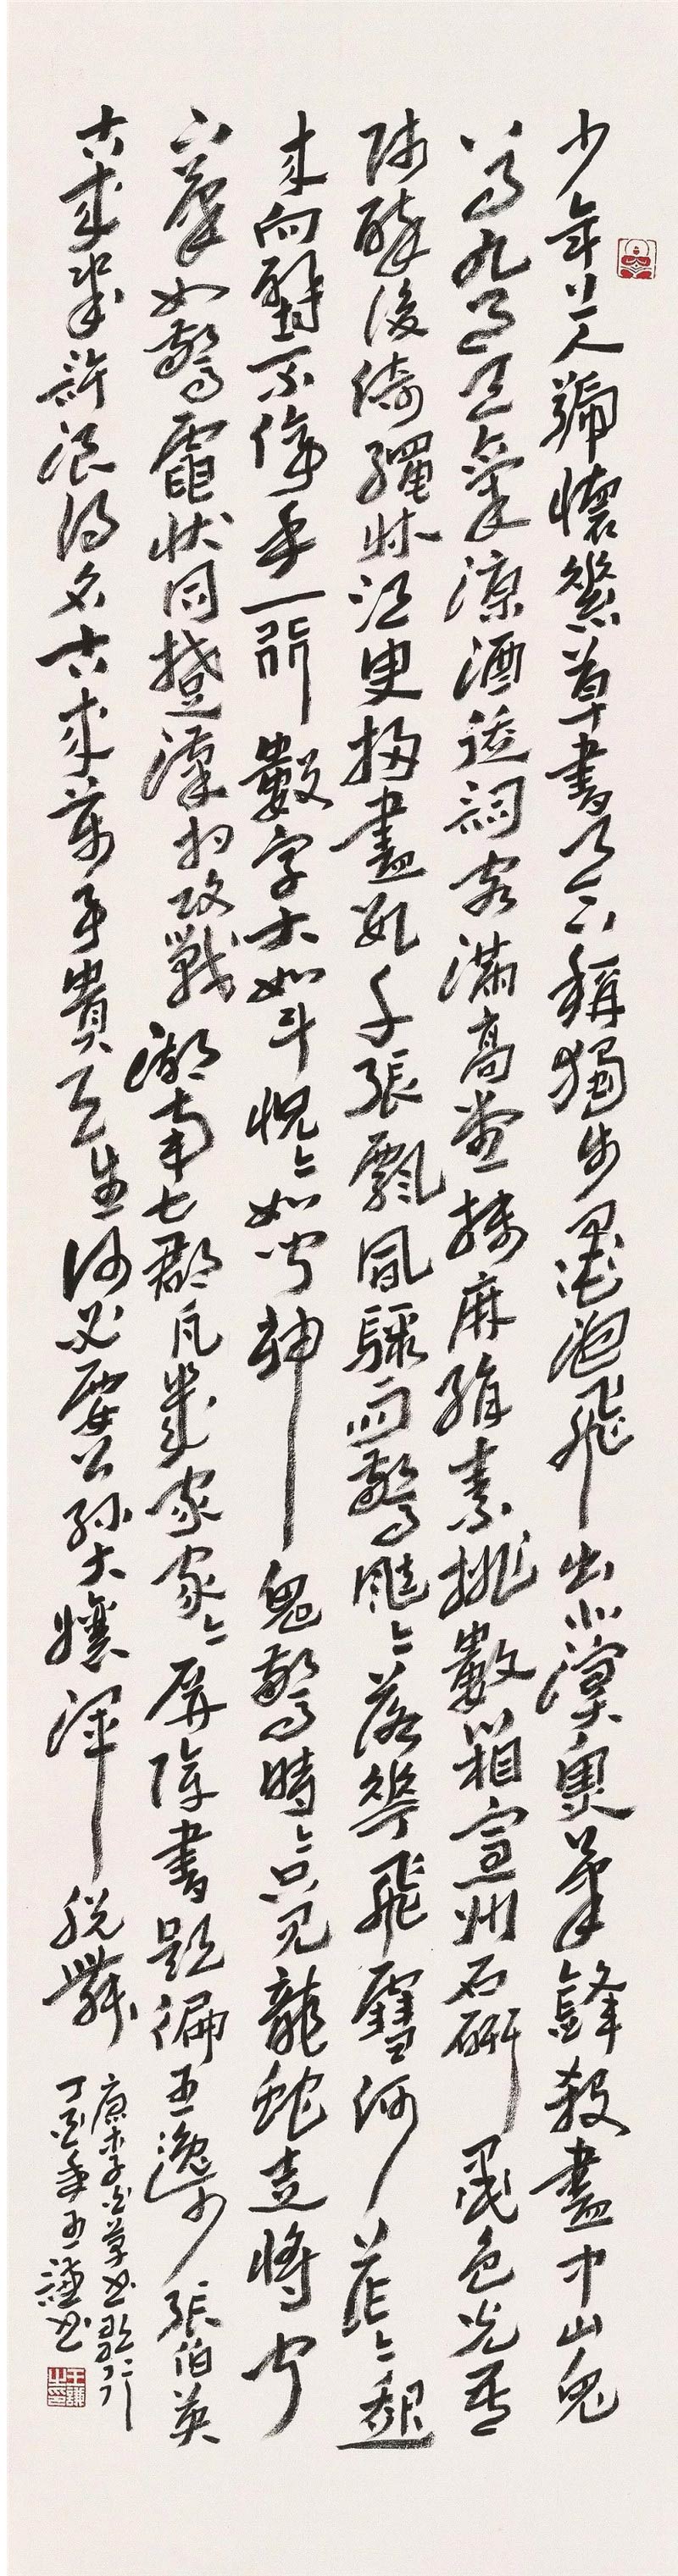 少年上人號懷素草書天下稱獨步墨池飛出北溟魚筆鋒殺盡中山兔
八月九月天氣涼酒徒詞客滿高堂牋麻絹素排數箱宣州石硯墨色光吾
師醉後倚繩床須臾掃盡數千張飄風驟雨驚颯〻落花飛雪何茫〻起
來向壁不停手一行數字大如斗怳〻如聞神鬼驚時〻只見龍蛇走
如驚電狀同楚漢相攻戰湖南七郡凡幾家家〻屏障書題徧王逸少張伯英
古來幾許浪得名古來萬事貴天生何必要公孫大孃渾脫舞
唐李白草書歌行
丁酉年王謙書
王謙之印